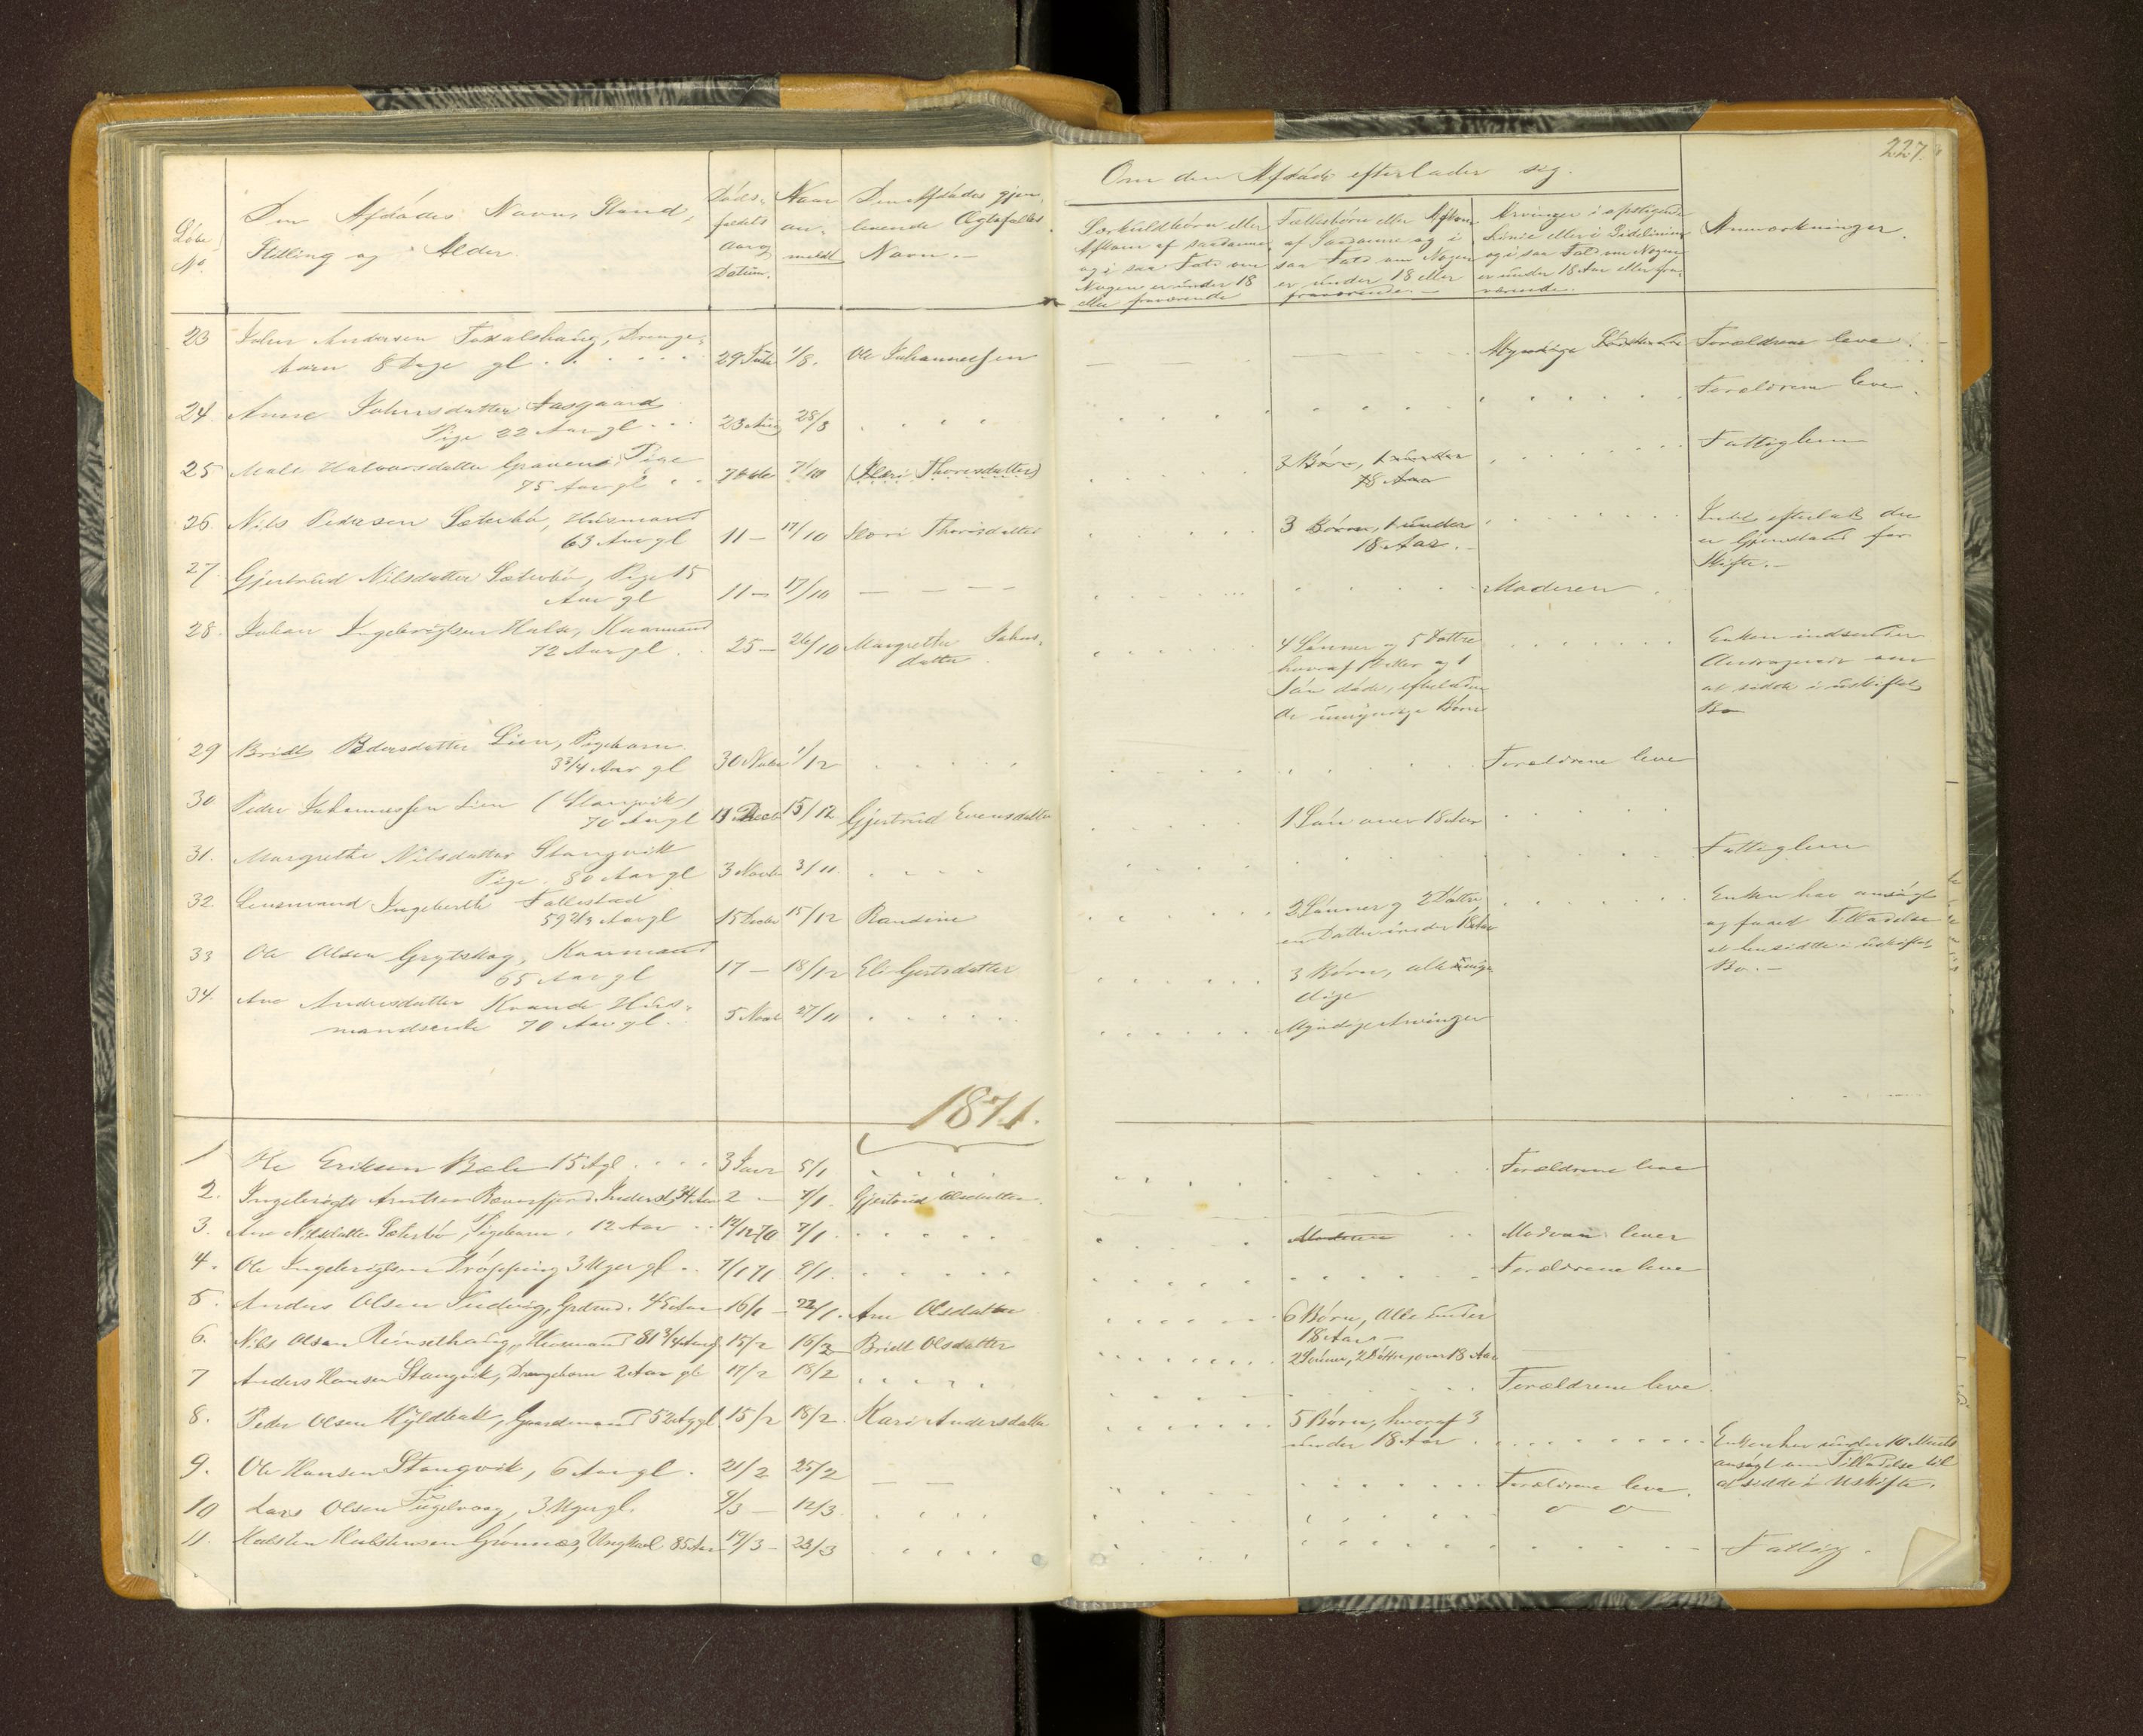 227.
Løbe
No.
Den Afdødes Navn, Stand,
Stilling og Alder.
Døds-
faldets
Aar og
Datum.
Naar
an-
meldt
Den Afdødes gjen-
levende Ægtefælles
Navn.
Om den Afdøde efterlader sig.
Særkuldbørn eller
Afkom af saadanne
og i saa Fald om
Nogen er under 18
eller fraværende
Fællesbørn eller Afkom
af Saadanne og i
saa Fald om Nogen
er under 18 eller
fraværende.
Arvinger i opstigende
Linie eller i Sidelinien
og i saa Fald om Nogen
er under 18 Aar eller fra-
værende.
Anmærkninger.
23 John Andersen , Drenge-
barn 8 Dage gl 29 Juli 1/8. Ole Johannessen Myndige Forældrene leve
24. Anne Johnsdatter Aasgaard
Pige 22 Aar gl 23 Aug 28/8 Forældrene leve
25 Mali Halvorsdatter Pige
75 Aar gl 7 Octbr 7/10 (Thoresdatter) 3 Børn, 1 under
18 Aar Fattiglem
26. Nils Pedersen Sæterbø, Husmand
63 Aar gl 11 – 17/10 Thoresdatter 3 Børn, 1 under
18 Aar. Intet efterladt der
er Gjenstand for
Skifte.
27. Gjertrud Nilsdatter Sæterbø, Pige 15
Aar gl 11 – 17/10 Moderen
28. Johan Ingebrigtsen Halse, Kaarmand
72 Aar gl 25 – 26/10 Margrethe Johns-
datter 4 Sønner og 5 Døttre
hvoraf 1 Datter og 1
Søn døde, efterladen-
de umyndige Børn Enken indsender
Andragende om
at sidde i uskiftet
Bo
29 Bridt Pedersdatter Lien, Pigebarn
3 3/4 Aar gl 30 Novbr 1/12 Forældrene leve
30. Peder Johannessen Lien (Stangvik)
70 Aar gl 11 Decbr 15/12 Gjertrud Evensdatter 1 Søn over 18 Aar
31. Margrethe Nilsdatter Stangvik
Pige 80 Aar gl 3 Novbr 3/11. Fattiglem
32. Lensmand Ingeberth Tallestad
59 2/3 Aar gl 15 Decbr 15/12 Randine 2 Sønner og 2 Døttre
en Datter under 18 Aar Enken har ansøgt
og faaet Tilladelse
at hensidde i uskiftet
Bo.
33 Ole Olsen Grytskog, Kaarmand
65 Aar gl 17 – 18/12 Eli Gjertsdatter 3 Børn, alle myn-
dige
34. Ane Andersdatter Kvande Hus-
mandsenke 70 Aar gl. 5 Novbr 27/11 Myndige Arvinger
1871.
1 Ole Eriksen Bæle 15 A gl 3 Janr 5/1 Forældrene leve
2. Ingebrigt Arntsen Bæverfjord, Inderst, 34 Aar 2 – 7/1. Gjertrud Olsdatter
3. Ane Nilsdatter Sæterbø, Pigebarn, 12 Aar 12/12 70 7/1 Moderen Moderen lever
4. Ole Ingebrigtsen Drøpping 3 Uger gl. 7/1 71 9/1. Forældrene leve
5. Anders Olsen Sudvig, Grdmd. 45 Aar 16/1 – 22/1. Ane Olsdatter 6 Børn, Alle under
18 Aar
6. Nils Olsen , Husmand 81 3/4 Aar gl 15/2 16/2 Bridt Olsdatter 2 Sønner, 2 Døttre, over 18 Aar
7 Anders Hansen Stangvik, Drengebarn 2 Aar gl 17/2 18/2 Forældrene leve
8. Peder Olsen Hyldbak, Gaardmand 52 A gl 15/2 18/2. Kari Andersdatter 5 Børn, hvoraf 3
under 18 Aar. Enken har under 10 Marts
ansøgt om Tilladelse til
at sidde i Uskifte.
9. Ole Hansen Stangvik, 6 Aar gl. 21/2 25/2 Forældrene leve.
10 Lars Olsen Fugelvaag, 3 Uger gl. 9/3 – 12/3.
11. Halsten Halstensen Grønnes, Ungkarl 85 Aar 19/3 – 23/3 Fattig.